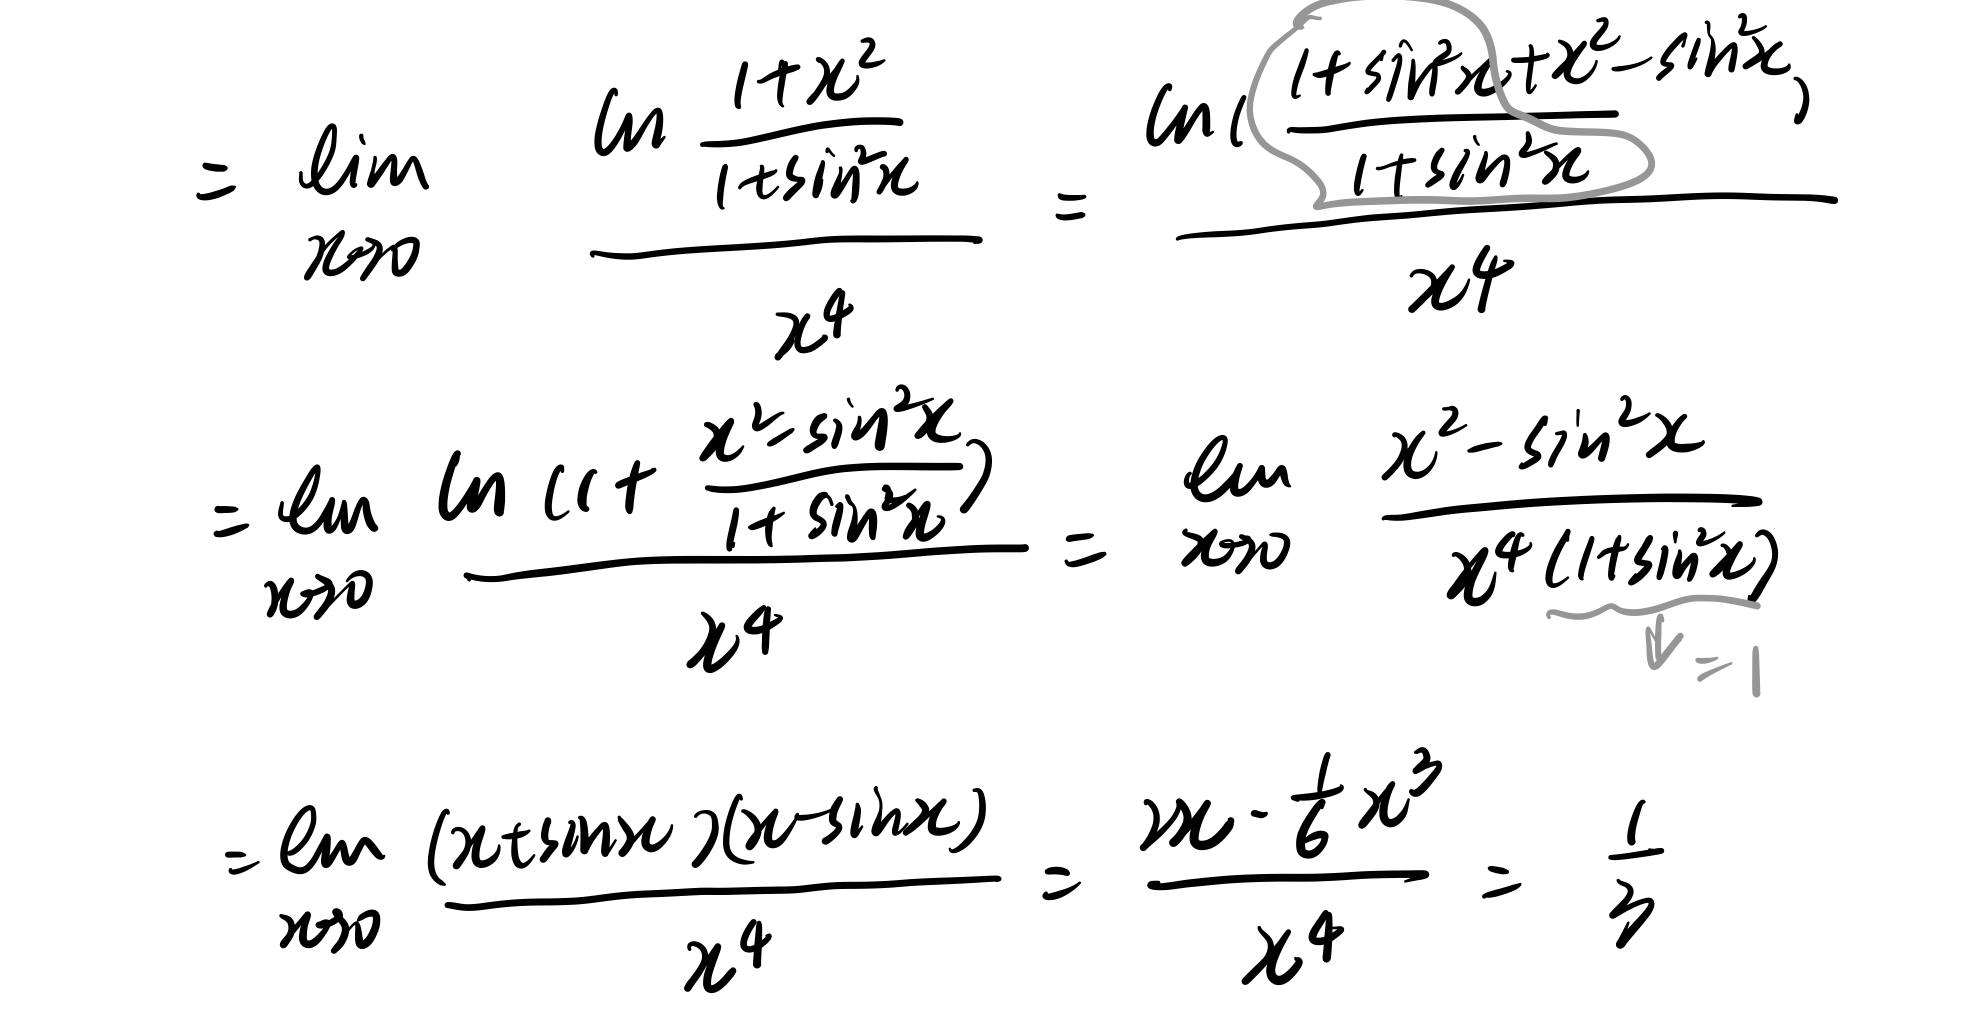 = lim x→0 ln (1+x²)/(1+sin²x) / x⁴ = ln( (1+sin²x+x²-sin²x)/(1+sin²x) ) / x⁴
= lim x→0 ln(1+ (x²-sin²x)/(1+sin²x) ) / x⁴ = lim x→0 (x²-sin²x) / x⁴(1+sin²x)
↓ =1
= lim x→0 (x+sinx)(x-sinx) / x⁴ = 2x·1/6x³ / x⁴ = 1/3